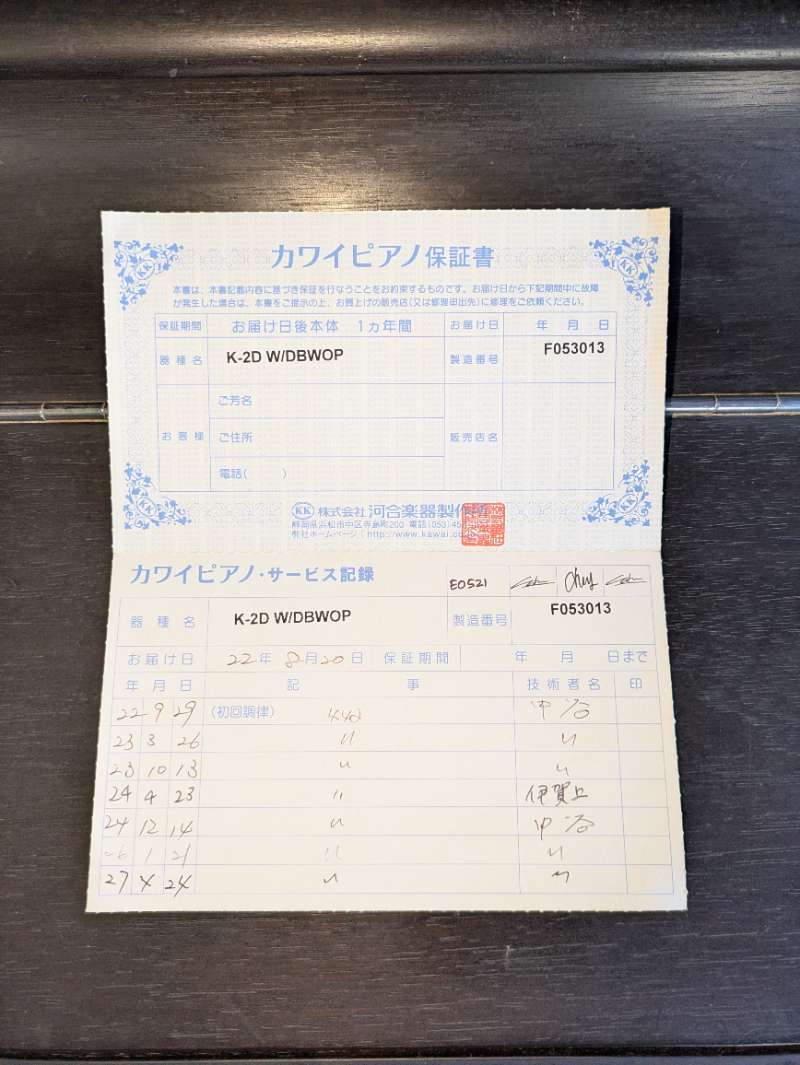 カワイピアノ保証書
本書は、本書記載内容に基づき保証を行なうことをお約束するものです。お届け日から下記期間中に故障
が発生した場合は、本書をご提示の上、お買上げの販売店(又は修理申出先)に修理をご依頼ください。
保証期間 お届け日後本体 1ヵ年間 お届け日 年 月 日
器種名 K-2D W/DBWOP 製造番号 F053013
お客様 ご芳名
ご住所 販売店名
電話( )
KK 株式会社 河合楽器製作所
静岡県浜松市中区寺島町200 電話(053)45
弊社ホームページ(http://www.kawai.co
カワイピアノ・サービス記録 E0521
器種名 K-2D W/DBWOP 製造番号 F053013
お届け日 22年 8月20日 保証期間 年 月 日まで
年 月 日 記事 技術者名 印
22 9 29 (初回調律) 440 中谷
23 3 26 〃 〃
23 10 13 〃 〃
24 4 23 〃 伊賀上
24 12 14 〃 中谷
26 1 21 〃 〃
27 4 24 〃 〃